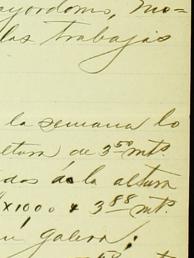 ayordomo, mo=
las trabajas
la semana lo
altura de 3⁵⁰ mts.
dos á la altura
"x1000 x 3⁸⁸ mts.
galera;